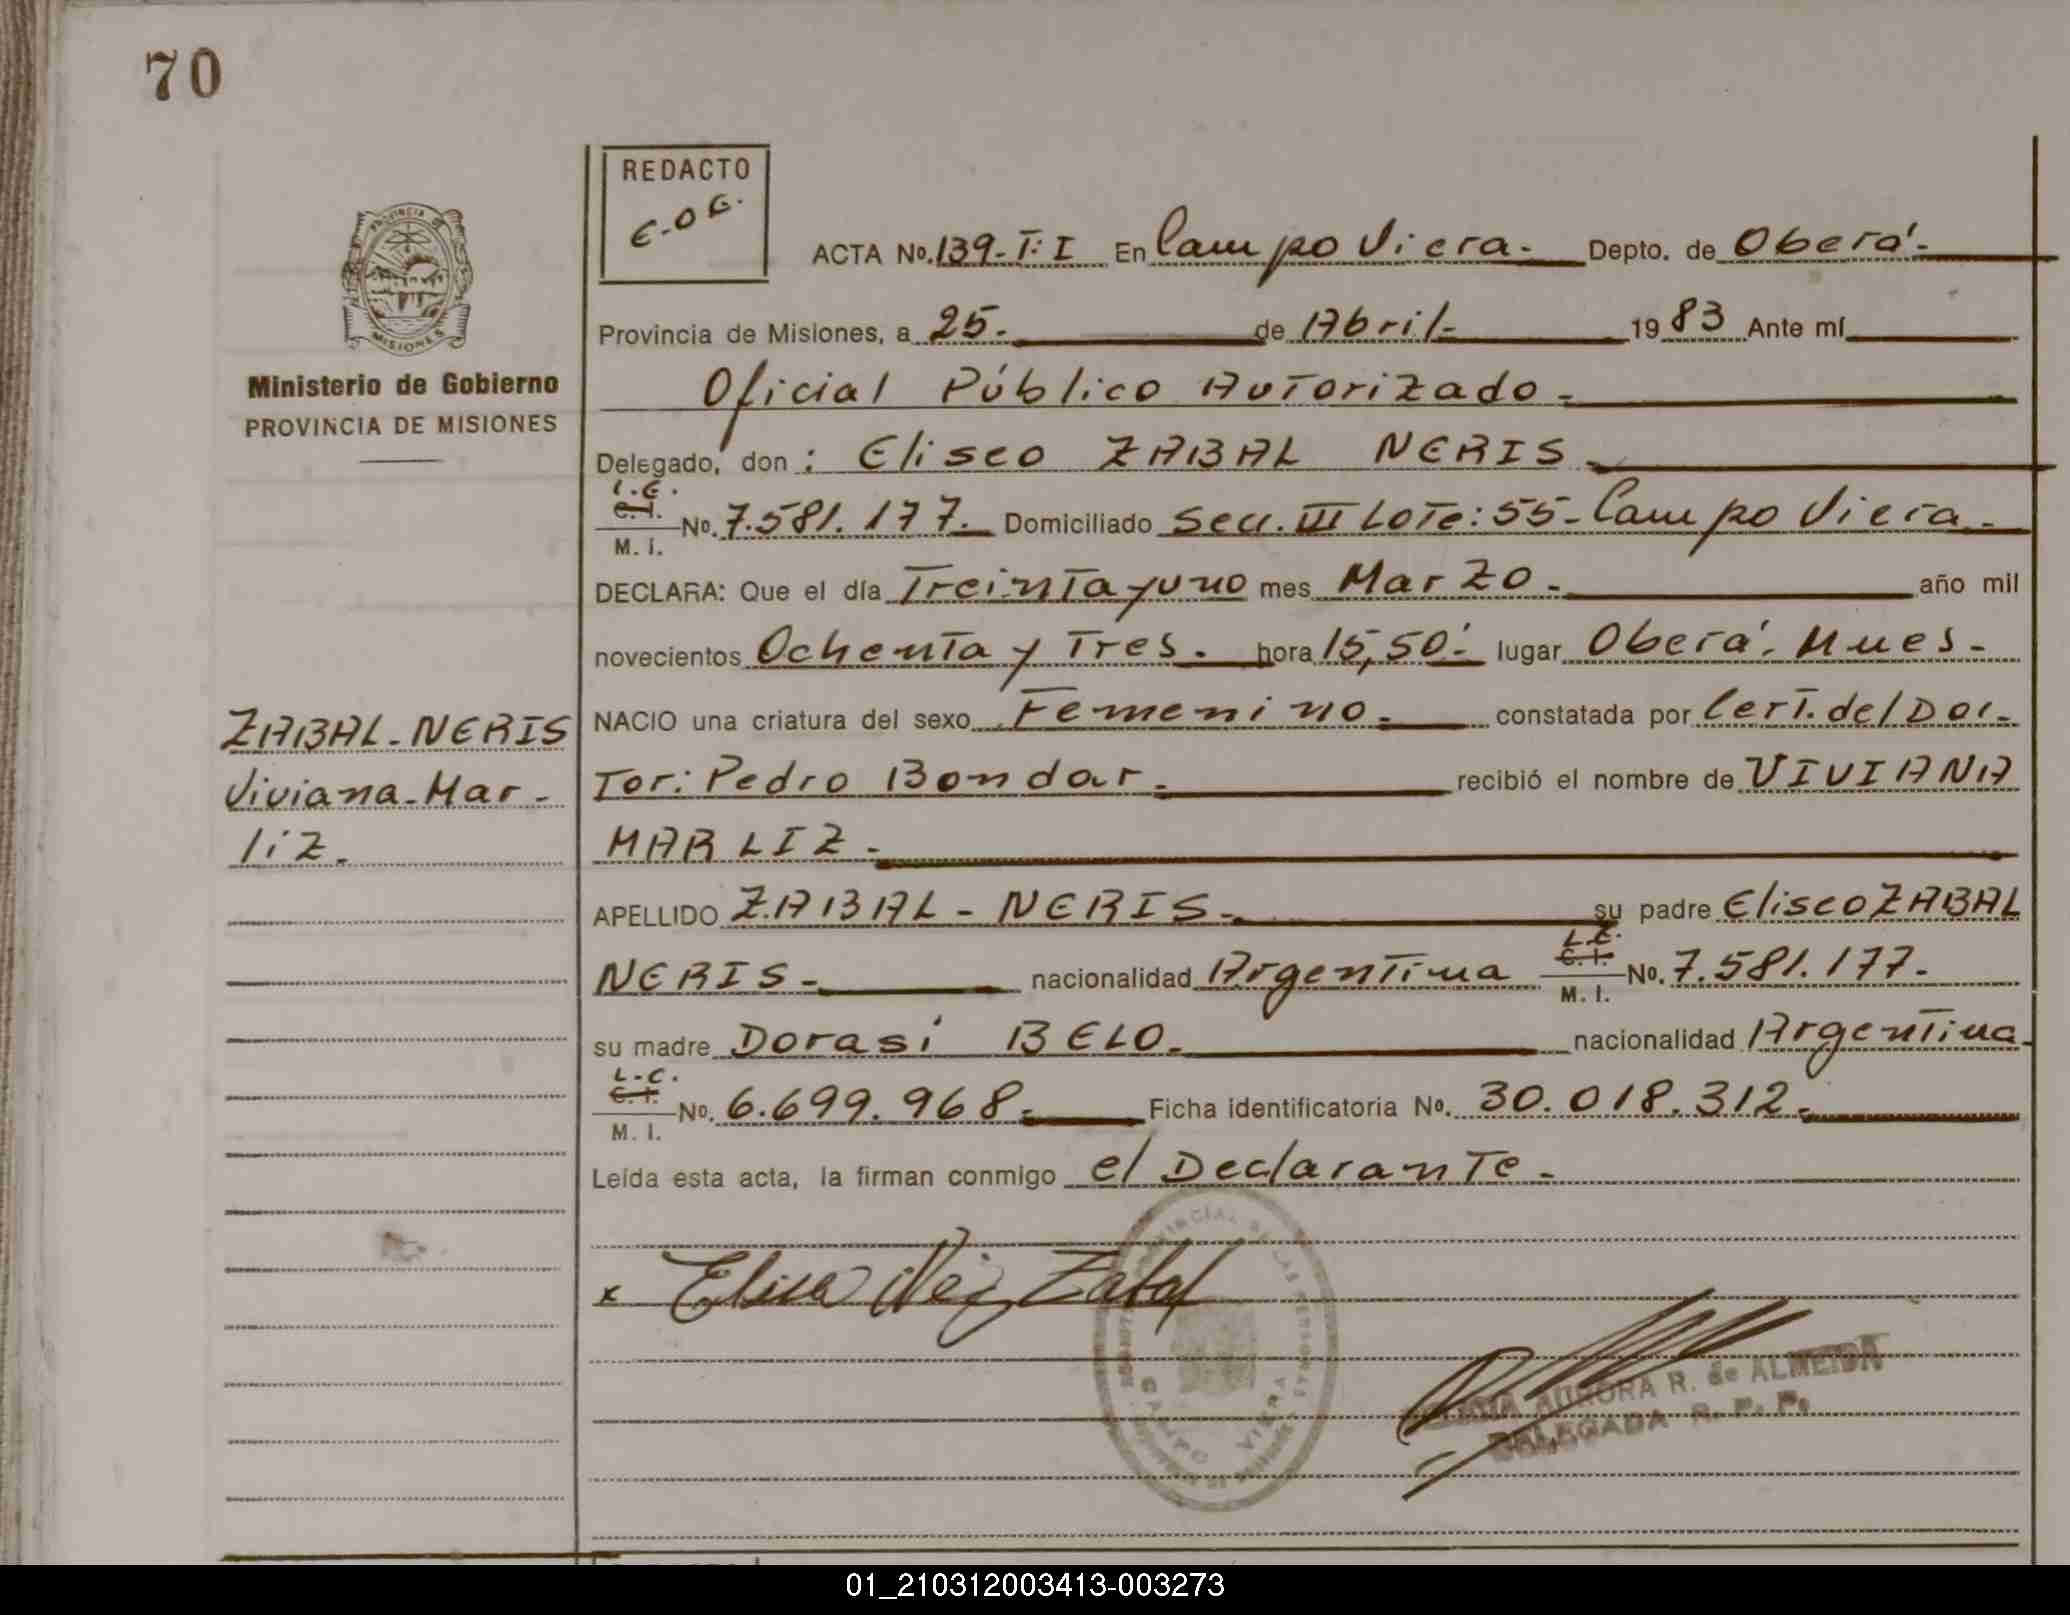 70
REDACTO
E.O.G.
ACTA No. 139-T:I En Campo Viera.- Depto. de Oberá.-
PROVINCIA DE
MISIONES
Provincia de Misiones, a 25.- de Abril.- 1983 Ante mí
Ministerio de Gobierno
PROVINCIA DE MISIONES
Oficial Público Autorizado.-
Delegado, don: Eliseo ZABAL NERIS.-
L.E.
C.I.
M. I. No. 7.581.177.- Domiciliado Secc. III Lote: 55- Campo Viera.-
DECLARA: Que el día Treinta y uno mes Marzo.- año mil
novecientos Ochenta y Tres.- hora 15,50'.- lugar Oberá, Mnes.-
ZABAL-NERIS
Viviana-Mar-
liz.
NACIO una criatura del sexo Femenino.- constatada por Cert. del Doc-
tor: Pedro Bondar.- recibió el nombre de VIVIANA
MARLIZ.-
APELLIDO ZABAL-NERIS.- su padre Eliseo ZABAL
NERIS.- nacionalidad Argentina L.E. C.I. M. I. No. 7.581.177.-
su madre Dorasi BELO.- nacionalidad Argentina.-
L.C.
C.I.
M. I. No. 6.699.968.- Ficha identificatoria No. 30.018.312.-
Leída esta acta, la firman conmigo el Declarante.-
x Zabal
CAMPO VIERA
AURORA R. de ALMEIDA
DELEGADA R. P. P.
01_210312003413-003273